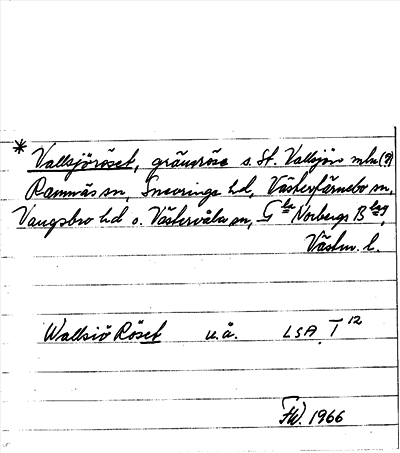 * Vallsjöröset, gränsröse s. St. Vallsjön mln (?)
Ramnäs sn, Snevringe hd, Västerfärnebo sn,
Vangsbro hd o. Västervåla sn, Gla Norbergs Blag,
Västm. l.
Wallsiö Röset u.å. LSA T 12
FW. 1966